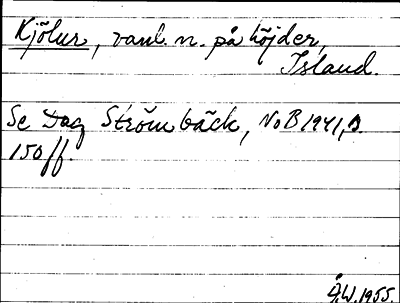 Kjölur, vanl. n. på höjder,
Island.
Se Dag Strömbäck, NoB 1941, s.
150 ff.
Å.W. 1955.